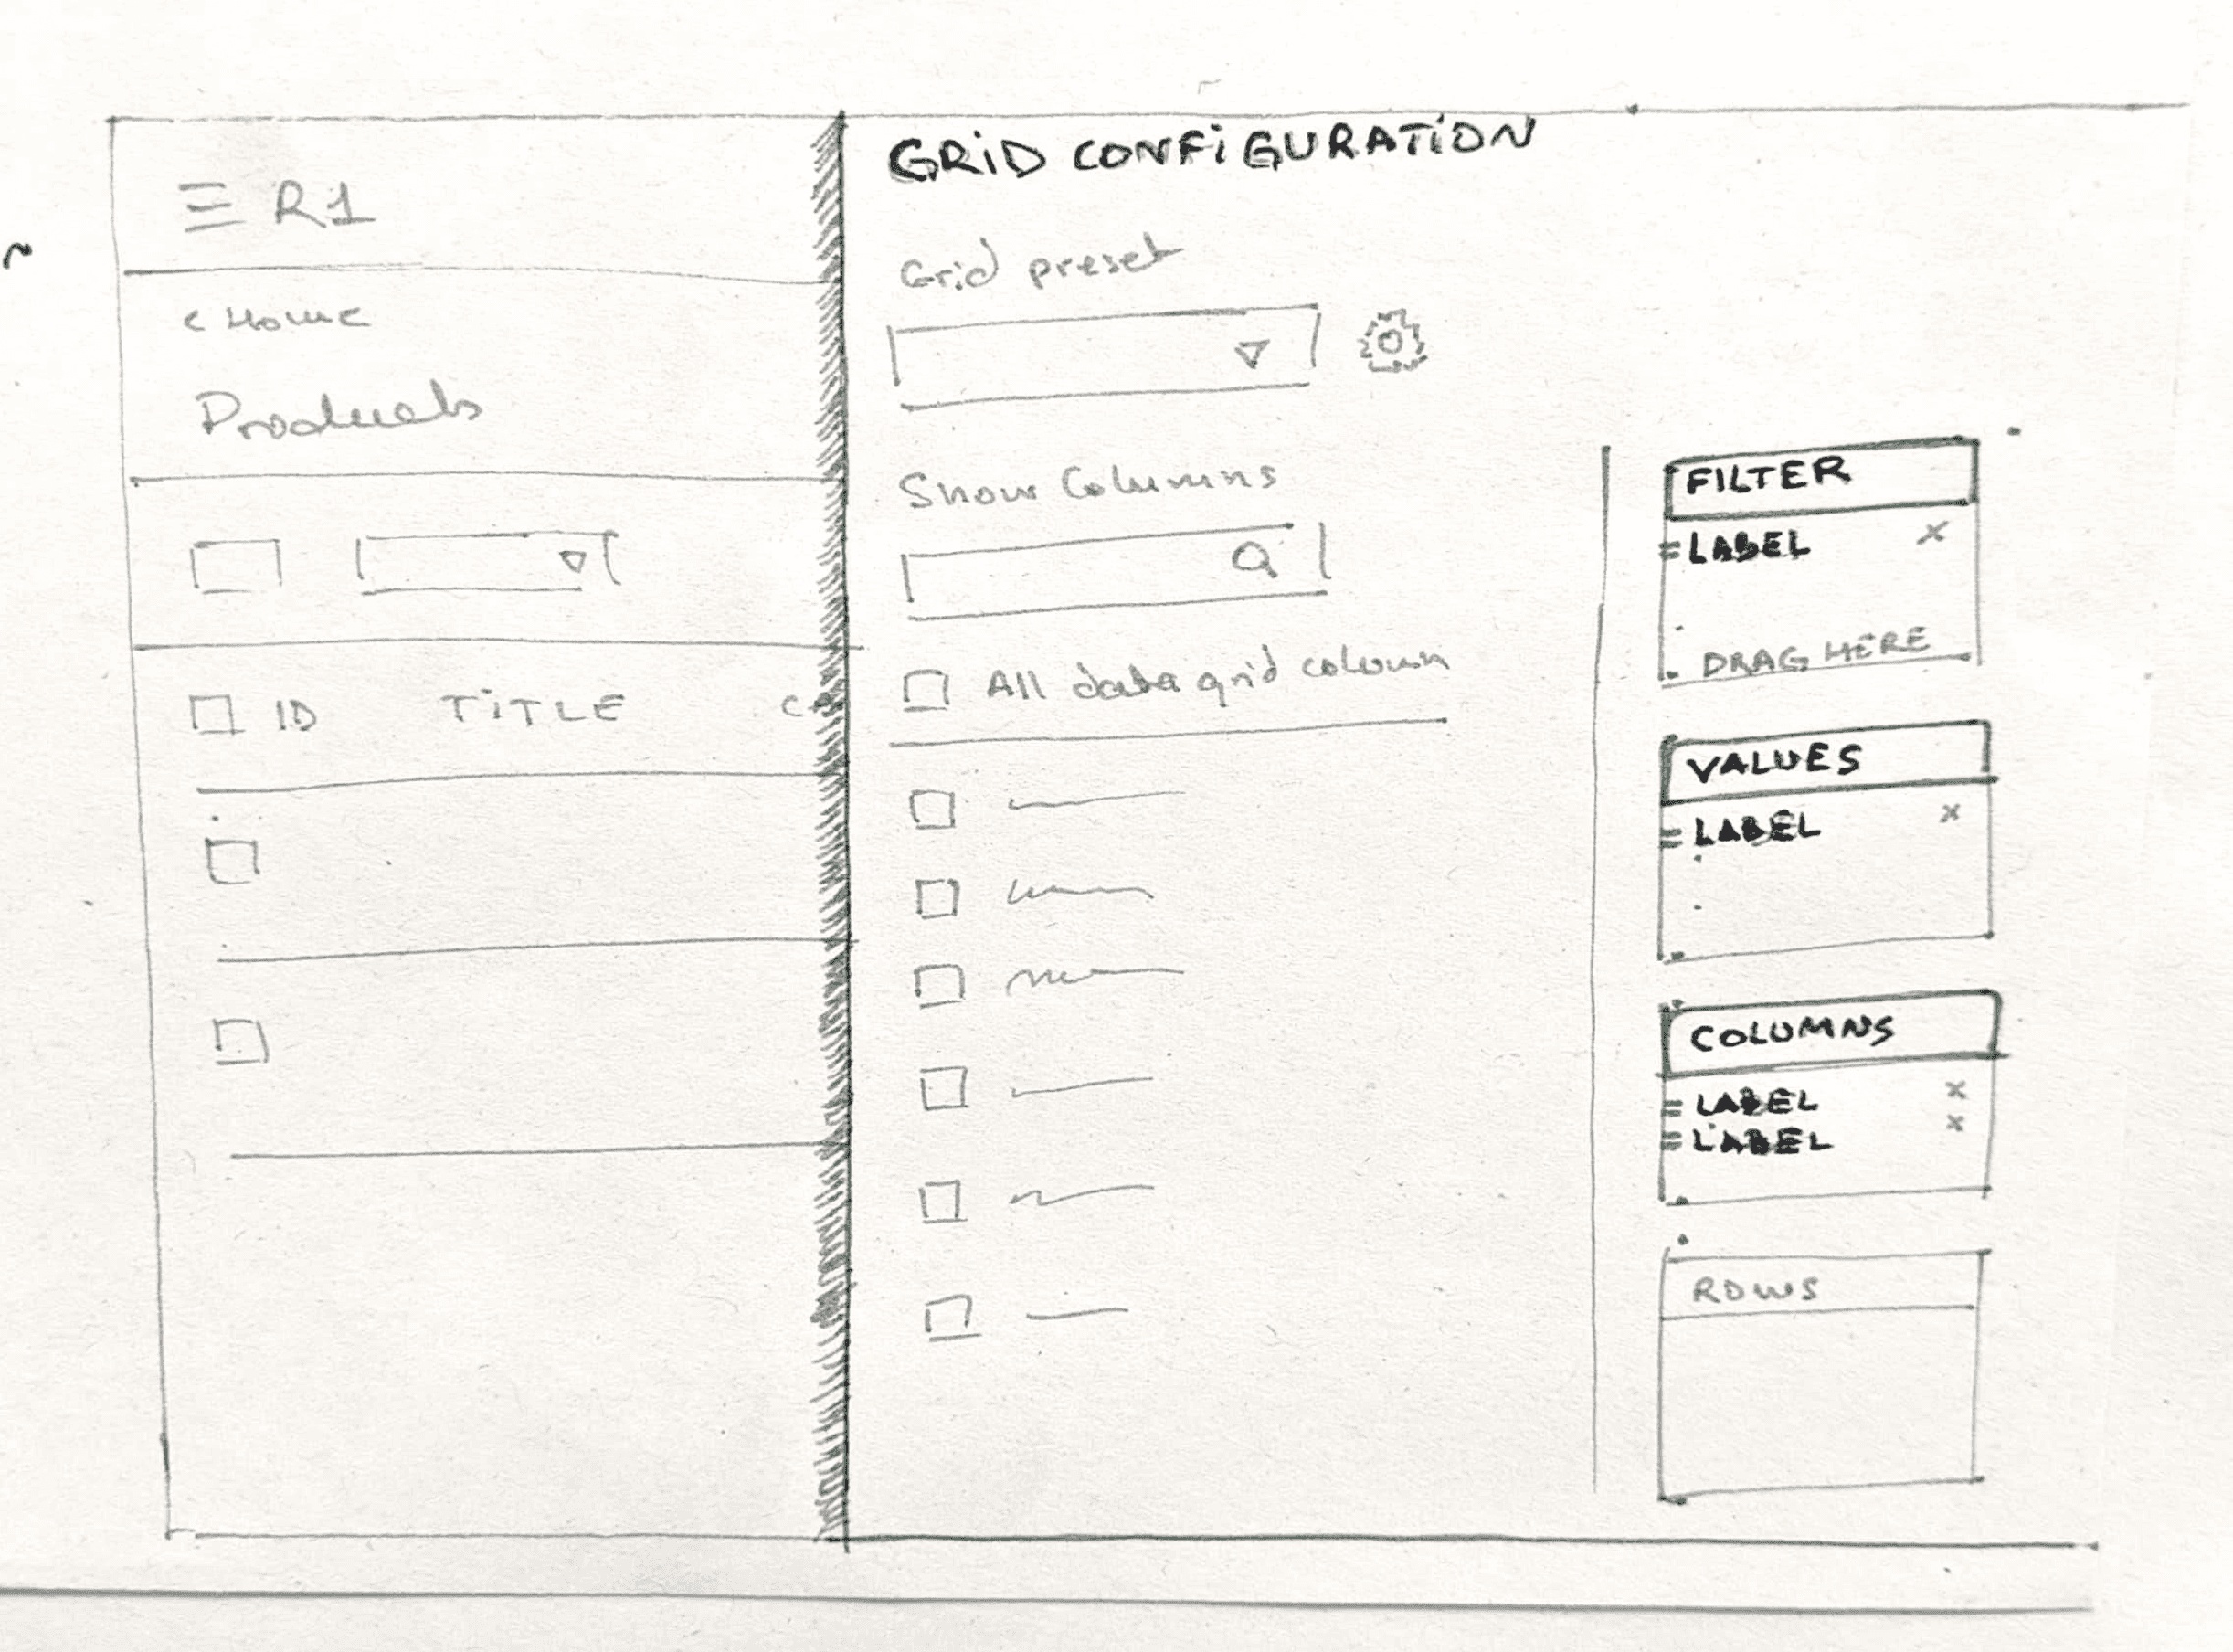 R1
< Home
Products
ID TITLE
GRID CONFIGURATION
Grid preset
Show Columns
All data grid column
FILTER
LABEL x
DRAG HERE
VALUES
LABEL x
COLUMNS
LABEL x
LABEL x
ROWS